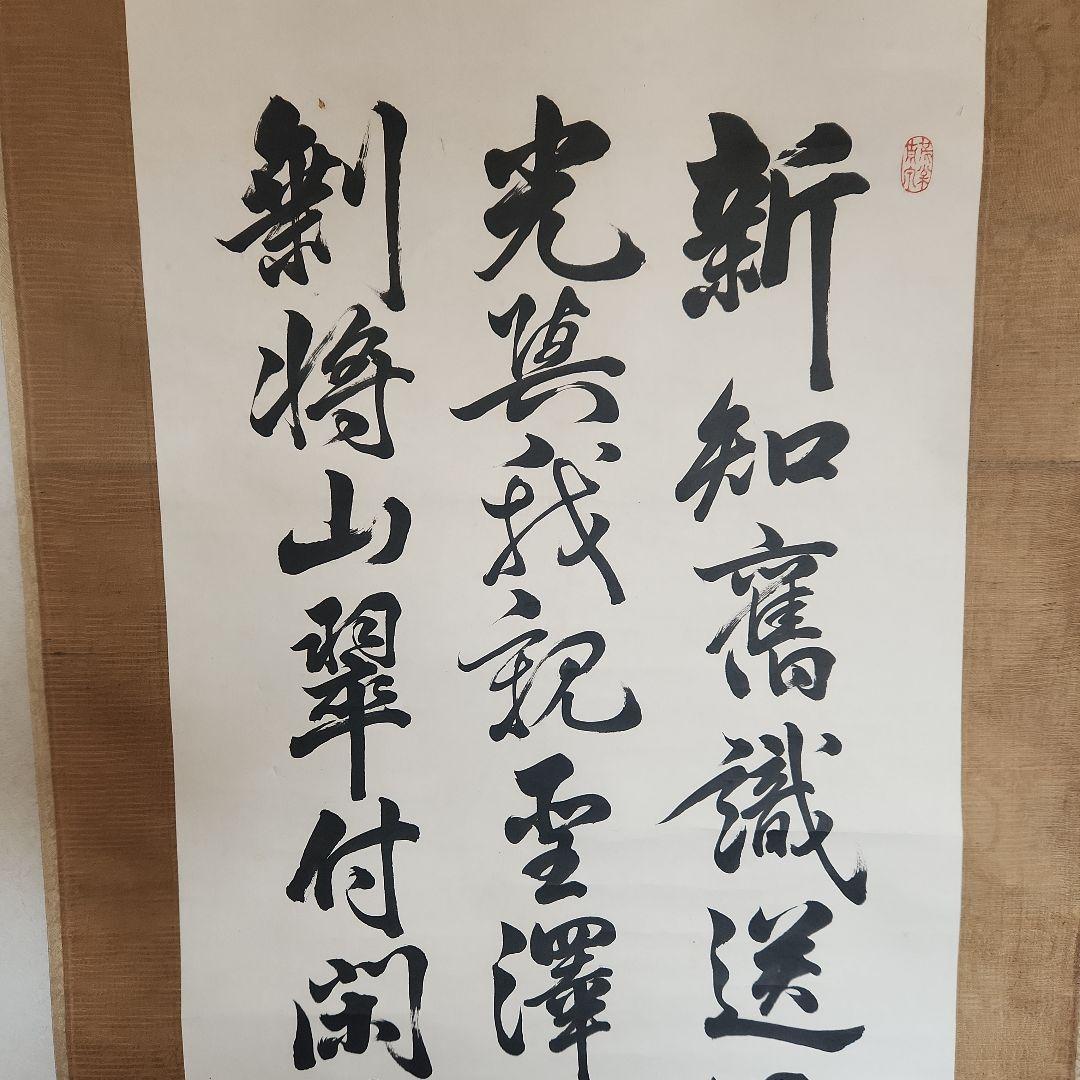 新知舊識送
光與我親聖澤
剩將山翠付閑